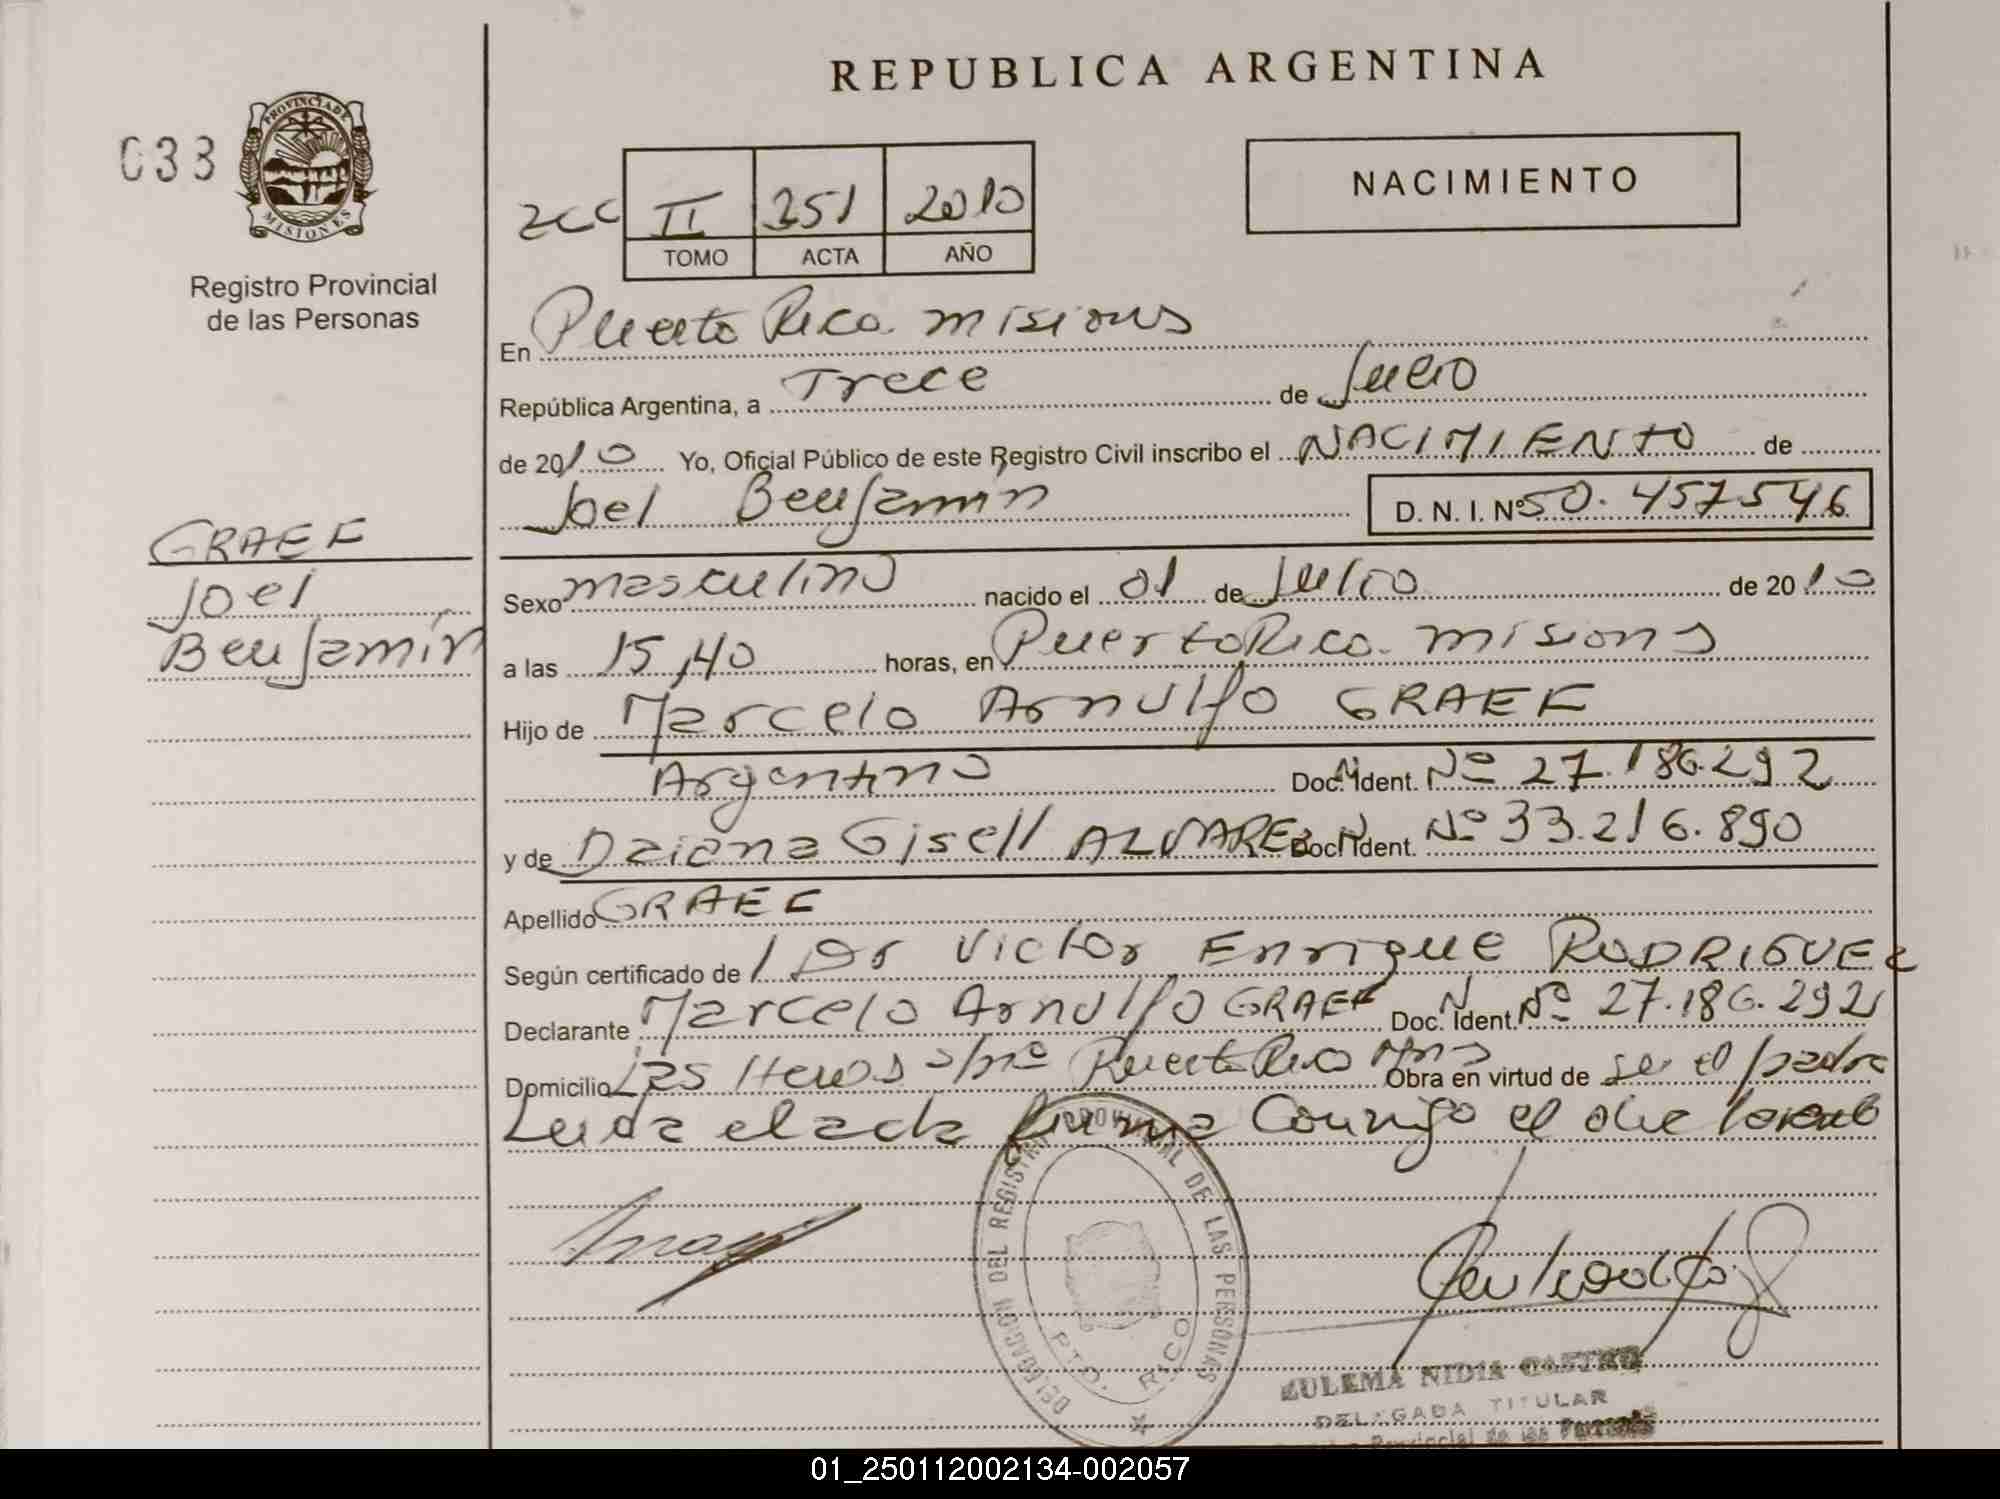 REPUBLICA ARGENTINA
033
PROVINCIA DE
MISIONES
Registro Provincial
de las Personas
NACIMIENTO
II 351 2010
TOMO ACTA AÑO
En Puerto Rico. misiones
República Argentina, a Trece de Julio
de 2010 Yo, Oficial Público de este Registro Civil inscribo el NACIMIENTO de
Joel Benjamín D. N. I. Nº 50.457546
GRAEF
Joel
Benjamín
Sexo masculino nacido el 01 de Julio de 2010
a las 15,40 horas, en Puerto Rico. misiones
Hijo de Marcelo Arnulfo GRAEF
Argentino Doc. Ident. Nº 27.186.292
y de Daiana Gisell ALVAREZ Doc. Ident. Nº 33.216.890
Apellido GRAEF
Según certificado de / Dr Victor Enrique RODRIGUEZ
Declarante Marcelo Arnulfo GRAEF Doc. Ident. Nº 27.186.292
Domicilio Las s/nº Puerto Rico Mns Obra en virtud de ser el padre
Leida el acta firma Conmigo el
DELEGACION DEL REGISTRO PROVINCIAL DE LAS PERSONAS
PTO. RICO
ZULEMA NIDIA CASTRO
DELEGADA TITULAR
Provincial de las Personas
01_250112002134-002057